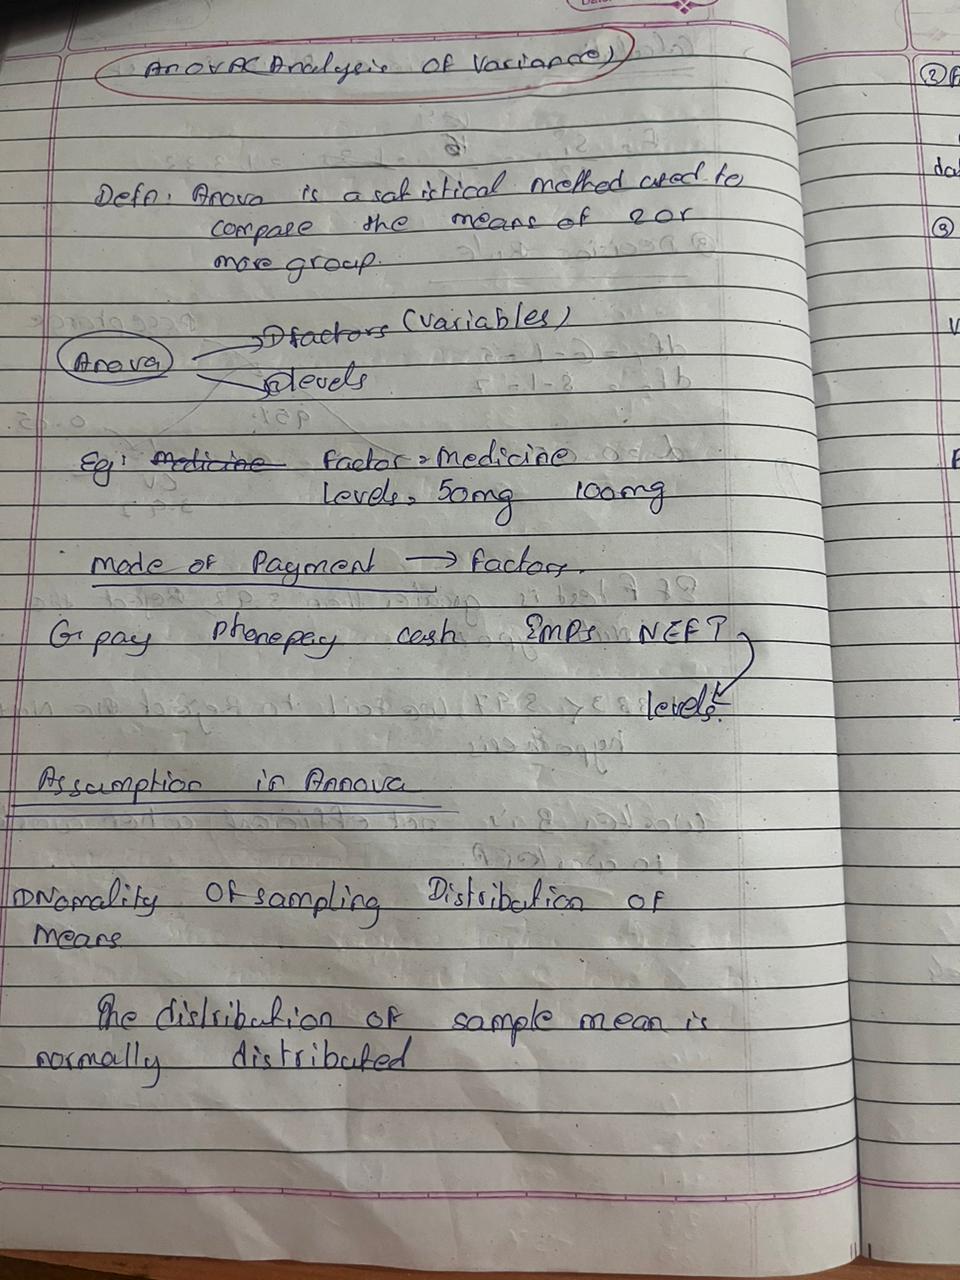 Anova (Analysis of Variance)
Defn: Anova is a satistical method used to
compare the means of 2 or
more group.
Anova
① factors (variables)
② levels
Eg: Medicine factor = medicine
levels = 50mg 100mg
Mode of Payment → factors.
G pay phonepay cash IMPS NEFT
levels.
Assumption in Annova
① Nomality Of sampling Distribution OF
Means
The distribution OF sample mean is
normally distributed
② F
da
③